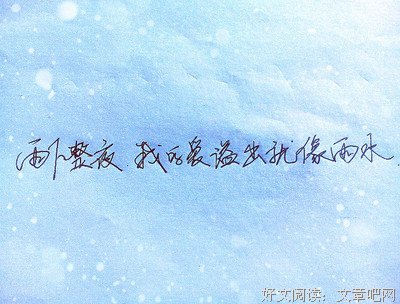 雨下整夜 我的爱溢出就像雨水
好文阅读：文章吧网